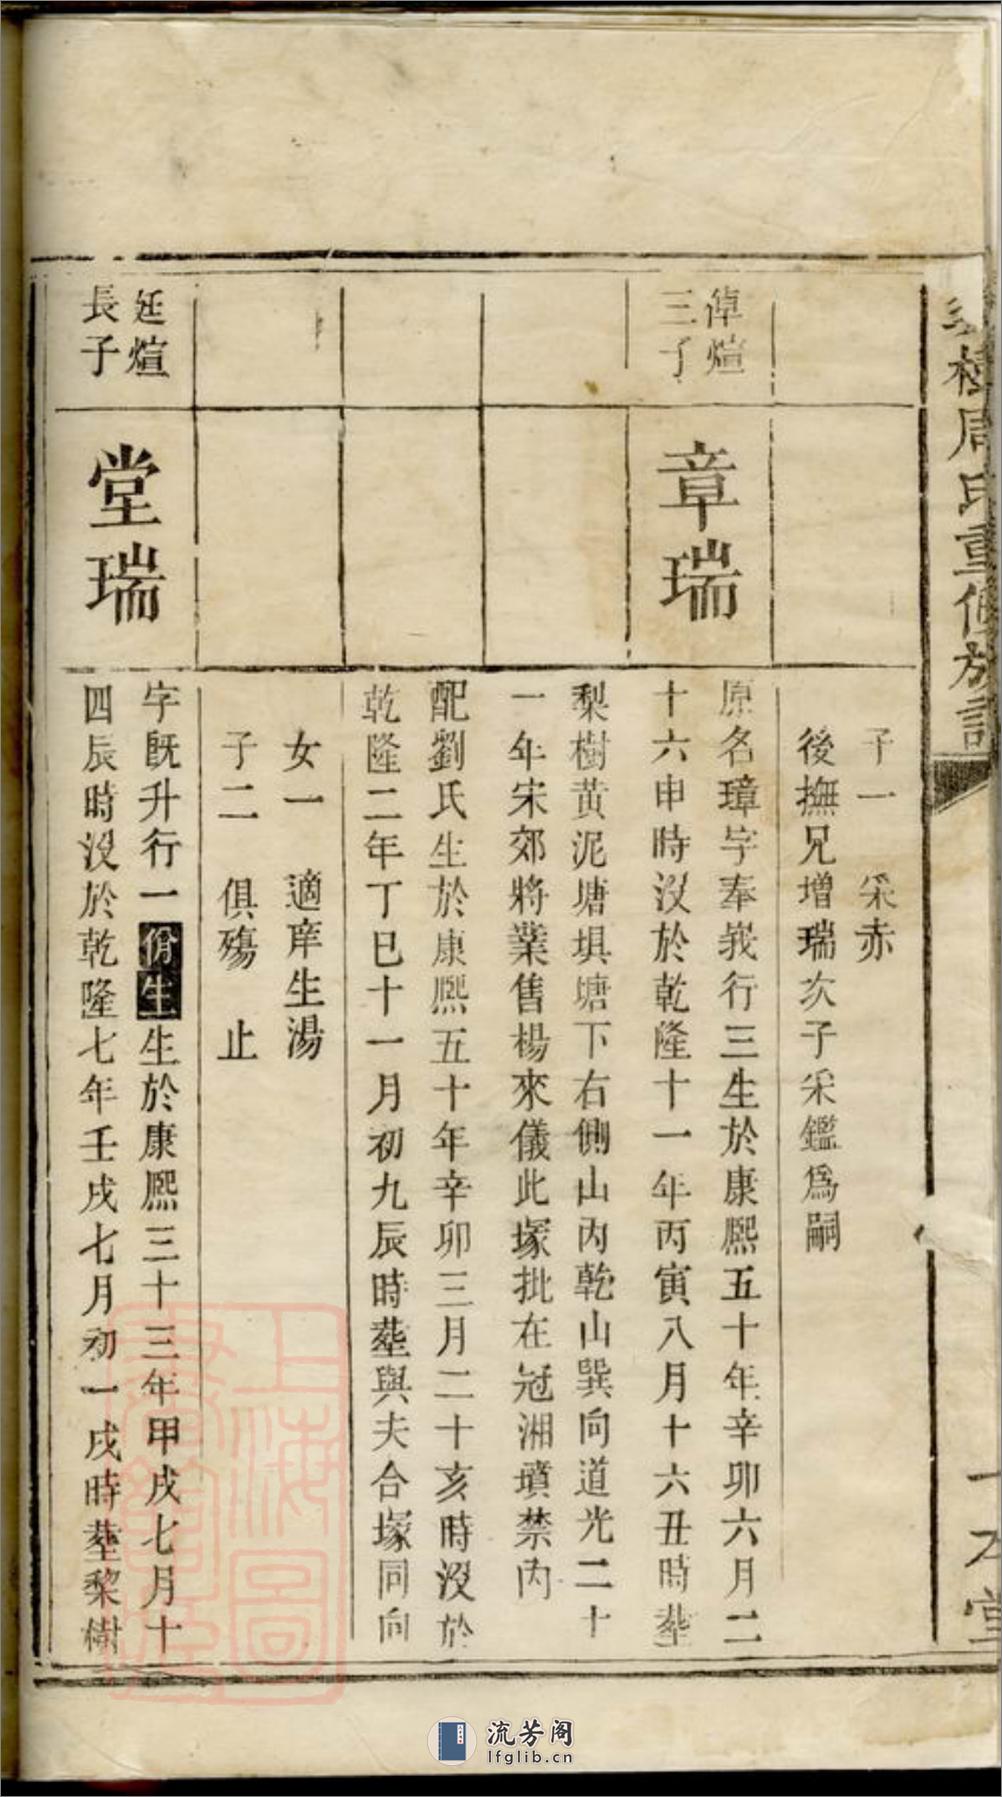 樹周氏重修族譜
一本堂
子一　采赤
後撫兄增瑞次子采鑑爲嗣
倬煊
三子
章瑞
原名璋字奉峩行三生於康熙五十年辛卯六月二
十六申時沒於乾隆十一年丙寅八月十六丑時塟
梨樹黃泥塘垻塘下右側山內乾山巽向道光二十
一年宋郊將業售楊來儀此塚批在冠湘墳禁內
配劉氏生於康熙五十年辛卯三月二十亥時沒於
乾隆二年丁巳十一月初九辰時塟與夫合塚同向
女一　適庠生湯
子二　俱殤　止
廷煊
長子
堂瑞
字旣升行一佾生生於康熙三十三年甲戌七月十
四辰時沒於乾隆七年壬戌七月初一戌時塟黎樹
上海圖
書館藏
流芳阁
lfglib.cn